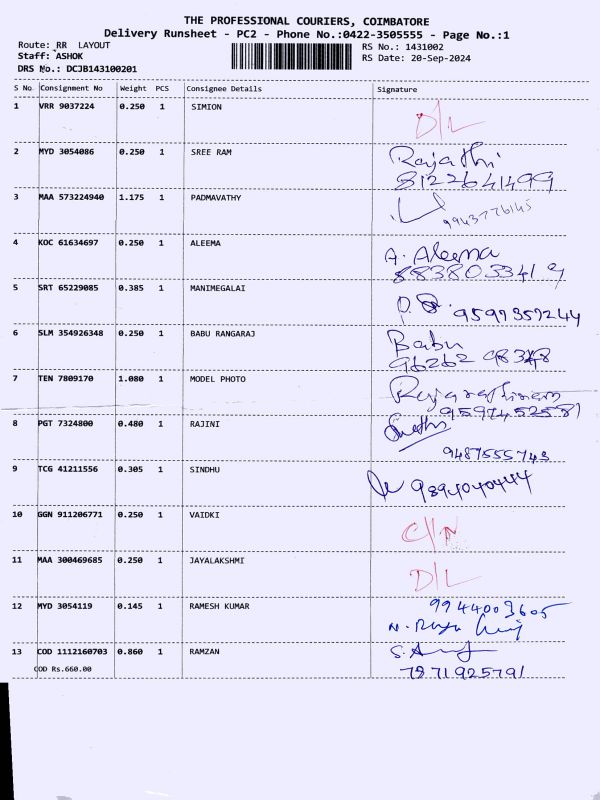 THE PROFESSIONAL COURIERS, COIMBATORE
Delivery Runsheet - PC2 - Phone No.:0422-3505555 - Page No.:1
Route: RR LAYOUT RS No.: 1431002
Staff: ASHOK RS Date: 20-Sep-2024
DRS No.: DCJB143100201
S No Consignment No Weight PCS Consignee Details Signature
1 VRR 9037224 0.250 1 SIMION D/L
2 MYD 3054086 0.250 1 SREE RAM Rajathi
8122641499
3 MAA 573224940 1.175 1 PADMAVATHY
9943776145
4 KOC 61634697 0.250 1 ALEEMA A. Aleema
8838033419
5 SRT 65229085 0.385 1 MANIMEGALAI 9597357244
6 SLM 354926348 0.250 1 BABU RANGARAJ Babu
7 TEN 7809170 1.080 1 MODEL PHOTO Rajarathinam
9597452581
8 PGT 7324800 0.480 1 RAJINI
9487555743
9 TCG 41211556 0.305 1 SINDHU 9894040444
10 GGN 911206771 0.250 1 VAIDKI C/N
11 MAA 300469685 0.250 1 JAYALAKSHMI D/L
12 MYD 3054119 0.145 1 RAMESH KUMAR 9944003605
13 COD 1112160703 0.860 1 RAMZAN
COD Rs.660.00 7871925791